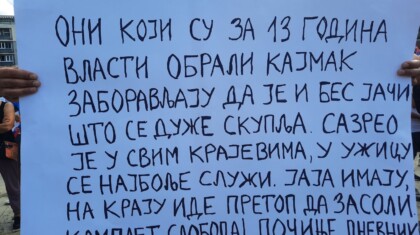 ОНИ КОЈИ СУ ЗА 13 ГОДИНА
ВЛАСТИ ОБРАЛИ КАЈМАК
ЗАБОРАВЉАЈУ ДА ЈЕ И БЕС ЈАЧИ
ШТО СЕ ДУЖЕ СКУПЉА. САЗРЕО
ЈЕ У СВИМ КРАЈЕВИМА, У УЖИЦУ
СЕ НАЈБОЉЕ СЛУЖИ. ЈАЈА ИМАЈУ,
НА КРАЈУ ИДЕ ПРЕТОП ДА ЗАСОЛИ
КОМПЛЕТ СЛОБОДА! ПОЧИЊЕ ДНЕВНИК